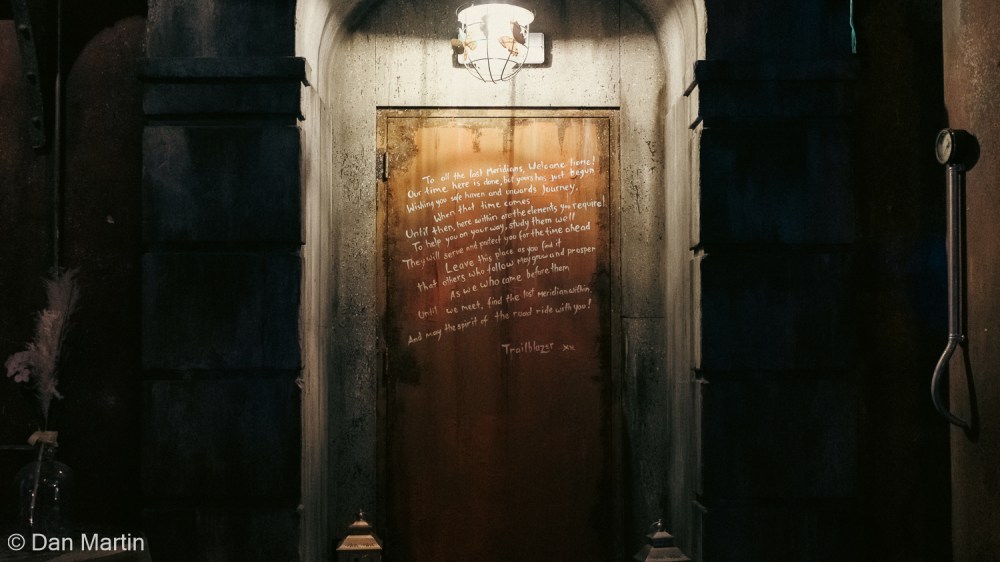 To all the lost Meridians, Welcome home!
Our time here is done, but yours has just begun
Wishing you safe haven and onwards Journey.
When that time comes
Until then, here within are the elements you require!
To help you on your way, study them well
They will serve and protect you for the time ahead
Leave this place as you find it
that others who follow may grow and prosper
As we who came before them
Until we meet, find the lost meridian within,
And may the spirit of the road ride with you!
Trailblazer xx
© Dan Martin